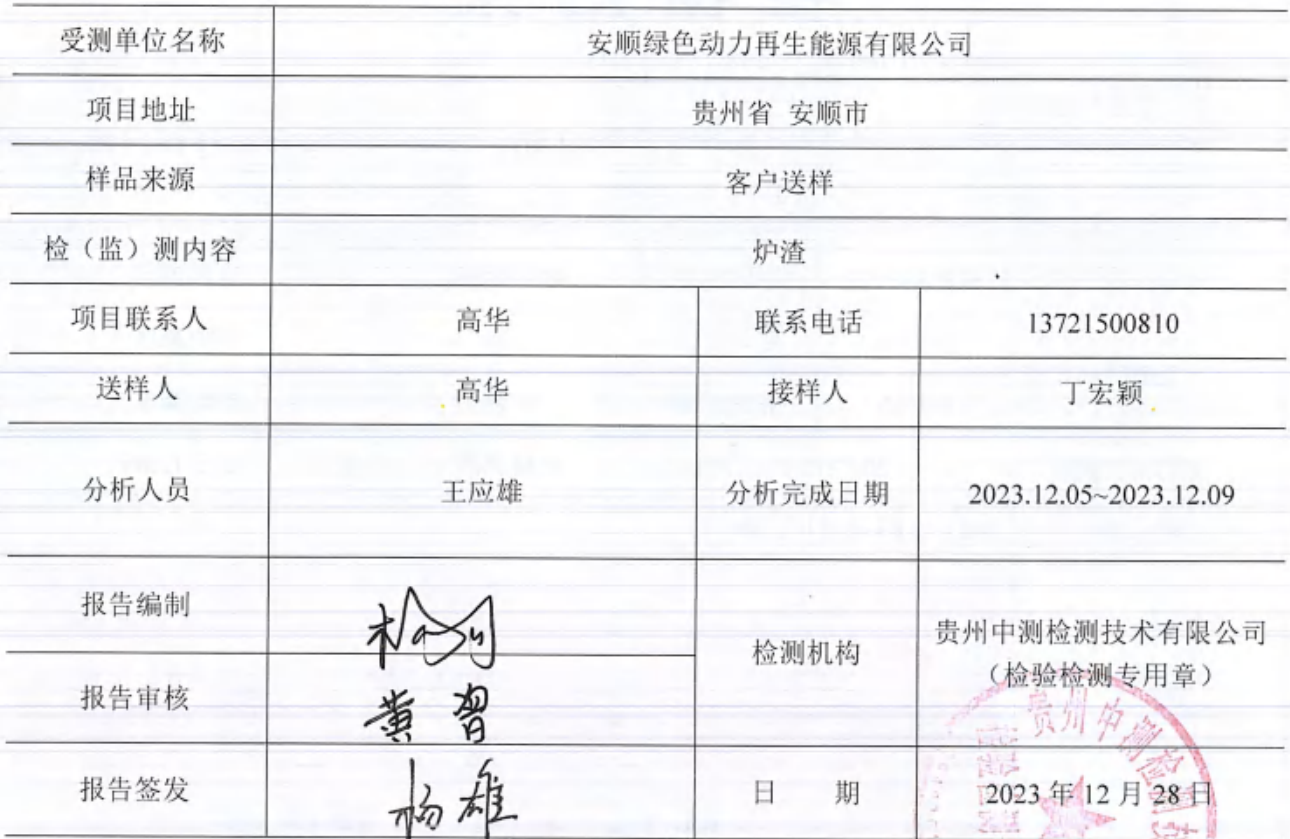 受测单位名称 安顺绿色动力再生能源有限公司
项目地址 贵州省 安顺市
样品来源 客户送样
检（监）测内容 炉渣
项目联系人 高华 联系电话 13721500810
送样人 高华 接样人 丁宏颖
分析人员 王应雄 分析完成日期 2023.12.05~2023.12.09
报告编制
检测机构 贵州中测检测技术有限公司
（检验检测专用章）
报告审核 黄習
贵州中测检测技
报告签发 杨雄 日 期 2023 年 12 月 28 日